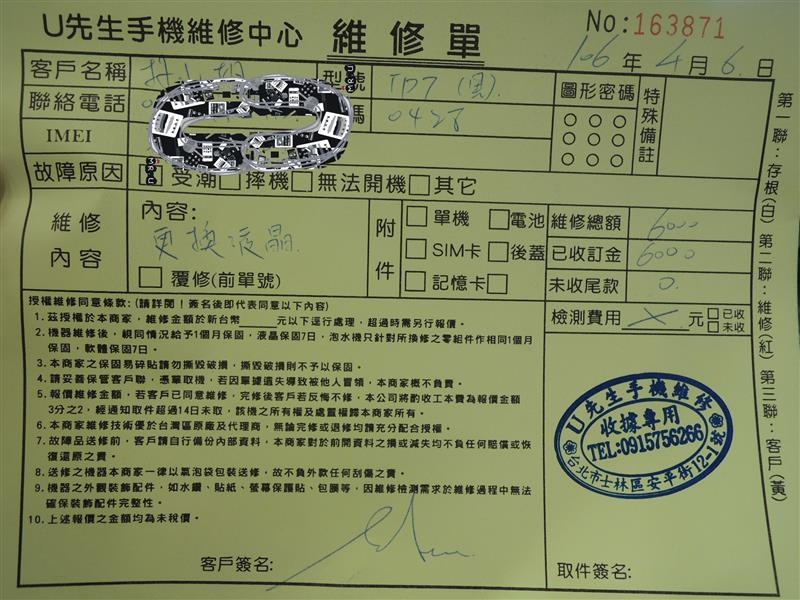 U先生手機維修中心 維修單
No:163871
106年4月6日
客戶名稱 型號 (黑)
聯絡電話 碼 0423
IMEI
圖形密碼 特殊備註
故障原因 受潮 摔機 無法開機 其它
維修內容 內容:
更換液晶
覆修(前單號)
附件 單機 電池
SIM卡 後蓋
記憶卡
維修總額 6000
已收訂金 6000
未收尾款 0.
檢測費用 X 元 已收 未收
授權維修同意條款:(請詳閱!簽名後即代表同意以下內容)
1. 茲授權於本商家,維修金額於新台幣_____元以下逕行處理,超過時需另行報價。
2. 機器維修後,視同情況給予1個月保固,液晶保固7日,泡水機只針對所換修之零組件作相同1個月
保固,軟體保固7日。
3. 本商家之保固易碎貼請勿撕毀破損,撕毀破損則不予以保固。
4. 請妥善保管客戶聯,憑單取機,若因單據遺失導致被他人冒領,本商家概不負責。
5. 報價維修金額,若客戶已同意維修,完修後客戶若反悔不修,本公司將酌收工本費為報價金額
3分之2,經通知取件超過14日未取,該機之所有權及處置權歸本商家所有。
6. 本商家維修技術優於台灣區原廠及代理商,無論完修或退修均請充分配合授權。
7. 故障品送修前,客戶請自行備份內部資料,本商家對於前開資料之損或滅失均不負任何賠償或恢
復還原之責。
8. 送修之機器本商家一律以氣泡袋包裝送修,故不負外款任何刮傷之責。
9. 機器之外觀裝飾配件,如水鑽、貼紙、螢幕保護貼、包膜等,因維修檢測需求於維修過程中無法
確保裝飾配件完整性。
10. 上述報價之金額均為未稅價。
客戶簽名:
取件簽名:
U先生手機維修
收據專用
TEL:0915756266
台北市士林區安平街12-1號
第一聯:存根(白) 第二聯:維修(紅) 第三聯:客戶(黃)